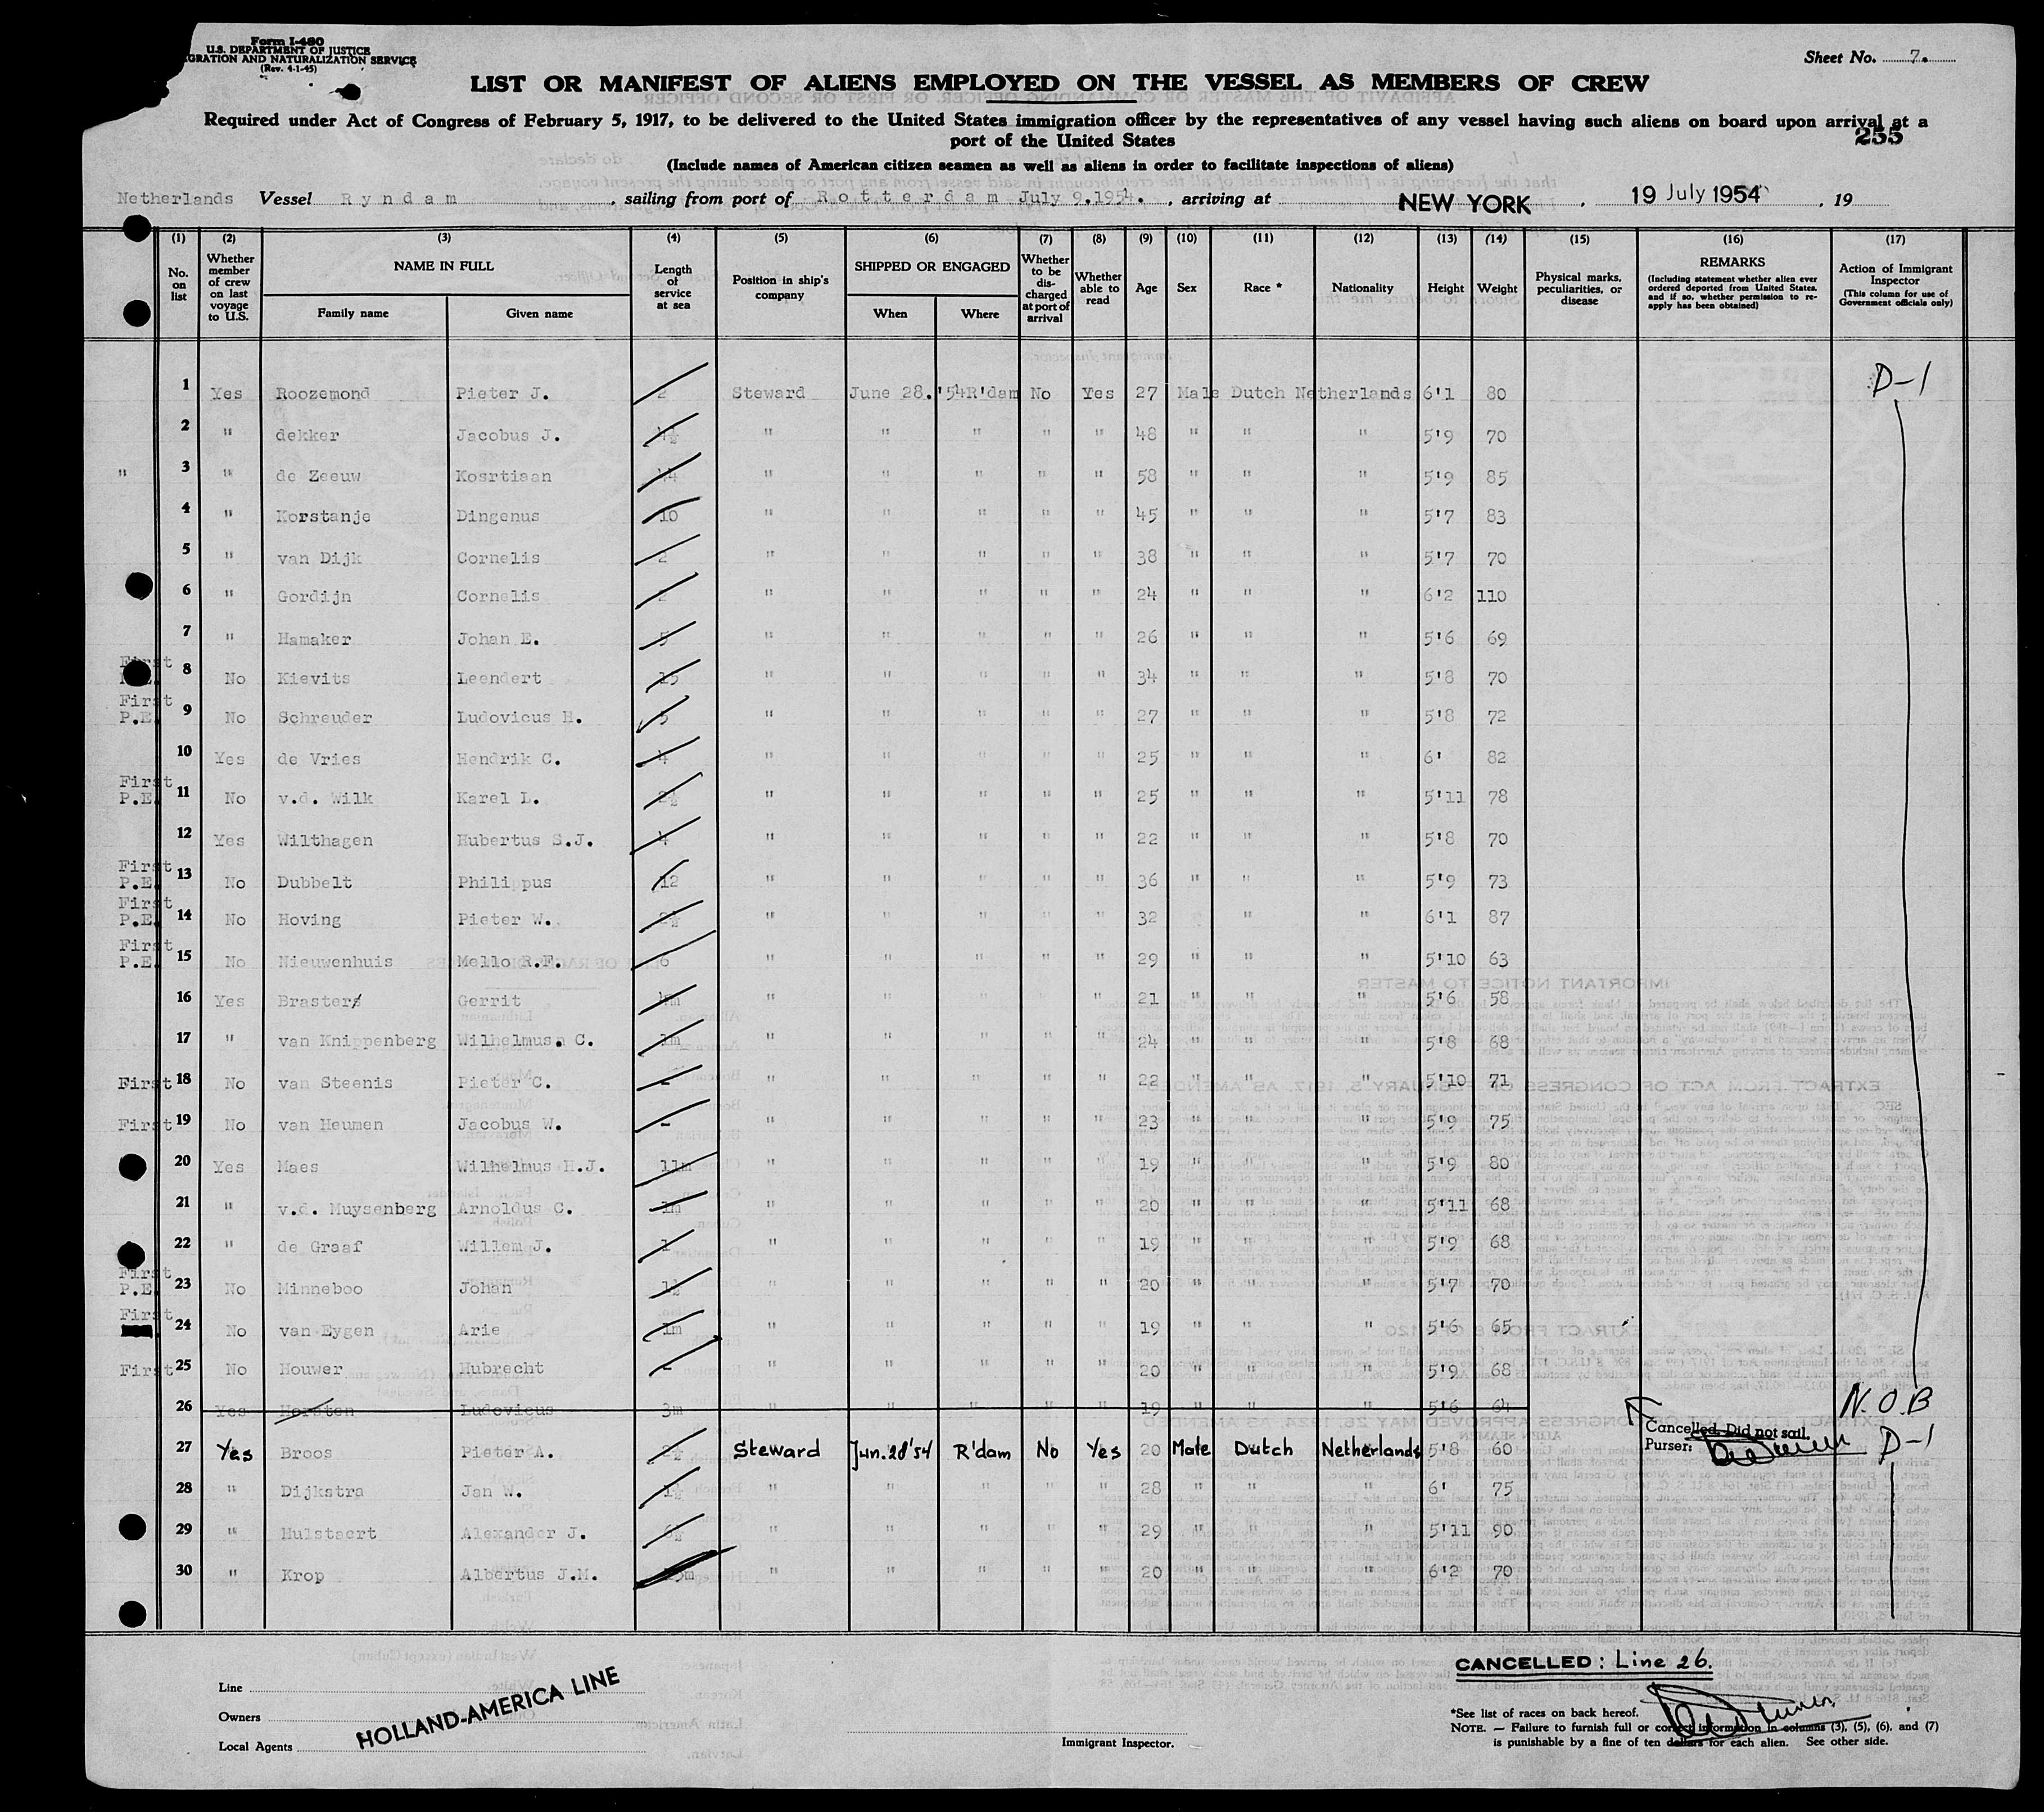 Form I-480
U.S. DEPARTMENT OF JUSTICE
IGRATION AND NATURALIZATION SERVICE
(Rev. 4-1-45)
Sheet No. 7.
LIST OR MANIFEST OF ALIENS EMPLOYED ON THE VESSEL AS MEMBERS OF CREW
Required under Act of Congress of February 5, 1917, to be delivered to the United States immigration officer by the representatives of any vessel having such aliens on board upon arrival at a
port of the United States
255
(Include names of American citizen seamen as well as aliens in order to facilitate inspections of aliens)
Netherlands Vessel Ryndam, sailing from port of Rotterdam July 9.1954., arriving at NEW YORK, 19 July 1954, 19
(1) (2) (3) (4) (5) (6) (7) (8) (9) (10) (11) (12) (13) (14) (15) (16) (17)
No. on list
Whether member of crew on last voyage to U.S.
NAME IN FULL
Family name
Given name
Length of service at sea
Position in ship's company
SHIPPED OR ENGAGED
When
Where
Whether to be discharged at port of arrival
Whether able to read
Age
Sex
Race *
Nationality
Height
Weight
Physical marks, peculiarities, or disease
REMARKS
(Including statement whether alien ever ordered deported from United States, and if so, whether permission to re-apply has been obtained)
Action of Immigrant Inspector
(This column for use of Government officials only)
1 Yes Roozemond Pieter J. 2 Steward June 28.'54 R'dam No Yes 27 Male Dutch Netherlands 6'1 80 D-1
2 " dekker Jacobus J. " " " " " 48 " " " 5'9 70
" 3 " de Zeeuw Kosrtiaan " " " " " 58 " " " 5'9 85
4 " Korstanje Dingenus 10 " " " " " 45 " " " 5'7 83
5 " van Dijk Cornelis 2 " " " " " 38 " " " 5'7 70
6 " Gordijn Cornelis " " " " " 24 " " " 6'2 110
7 " Hamaker Johan E. 5 " " " " " 26 " " " 5'6 69
First 8 No Kievits Leendert 15 " " " " " 34 " " " 5'8 70
First P.E. 9 No Schreuder Ludovicus H. 5 " " " " " 27 " " " 5'8 72
10 Yes de Vries Hendrik C. 4 " " " " " 25 " " " 6' 82
First P.E. 11 No v.d. Wilk Karel L. 2½ " " " " " 25 " " " 5'11 78
12 Yes Wilthagen Hubertus S.J. 4 " " " " " 22 " " " 5'8 70
First P.E. 13 No Dubbelt Philippus 12 " " " " " 36 " " " 5'9 73
First P.E. 14 No Hoving Pieter W. 2½ " " " " " 32 " " 6'1 87
First P.E. 15 No Nieuwenhuis Mello R.F. 6 " " " " " 29 " " " 5'10 63
16 Yes Brasters Gerrit " " " " " 21 " " " 5'6 58
17 " van Knippenberg Wilhelmus. C. 1m " " " " " 24 " " " 5'8 68
First 18 No van Steenis Pieter C. - " " " " " 22 " " " 5'10 71
First 19 No van Heumen Jacobus W. - " " " " " 23 " " " 5'9 75
20 Yes Maes Wilhelmus H.J. 11m " " " " " 19 " " " 5'9 80
21 " v.d. Muysenberg Arnoldus C. 1m " " " " " 20 " " " 5'11 68
22 " de Graaf Willem J. 1 " " " " " 19 " " " 5'9 68
First P.E. 23 No Minneboo Johan 1½ " " " " " 20 " " " 5'7 70
First 24 No van Eygen Arie 1m " " " " " 19 " " " 5'6 65
First 25 No Houwer Hubrecht - " " " " " 20 " " " 5'9 68
26 Yes Horsten Ludovicus 3m " " " " " 19 " " " 5'6 64 N.O.B
Cancelled. Did not sail.
Purser:
27 Yes Broos Pieter A. 2½ Steward Jun. 28'54 R'dam No Yes 20 Male Dutch Netherlands 5'8 60 D-1
28 " Dijkstra Jan W. 1½ " " " " " 28 " " " 6' 75
29 " Hulstaert Alexander J. " " " " " 29 " " " 5'11 90
30 " Krop Albertus J.M. " " " " " 20 " " " 6'2 70
CANCELLED: Line 26.
Line
Owners
Local Agents
HOLLAND-AMERICA LINE
Immigrant Inspector.
*See list of races on back hereof.
NOTE. — Failure to furnish full or correct information in columns (3), (5), (6), and (7)
is punishable by a fine of ten dollars for each alien. See other side.